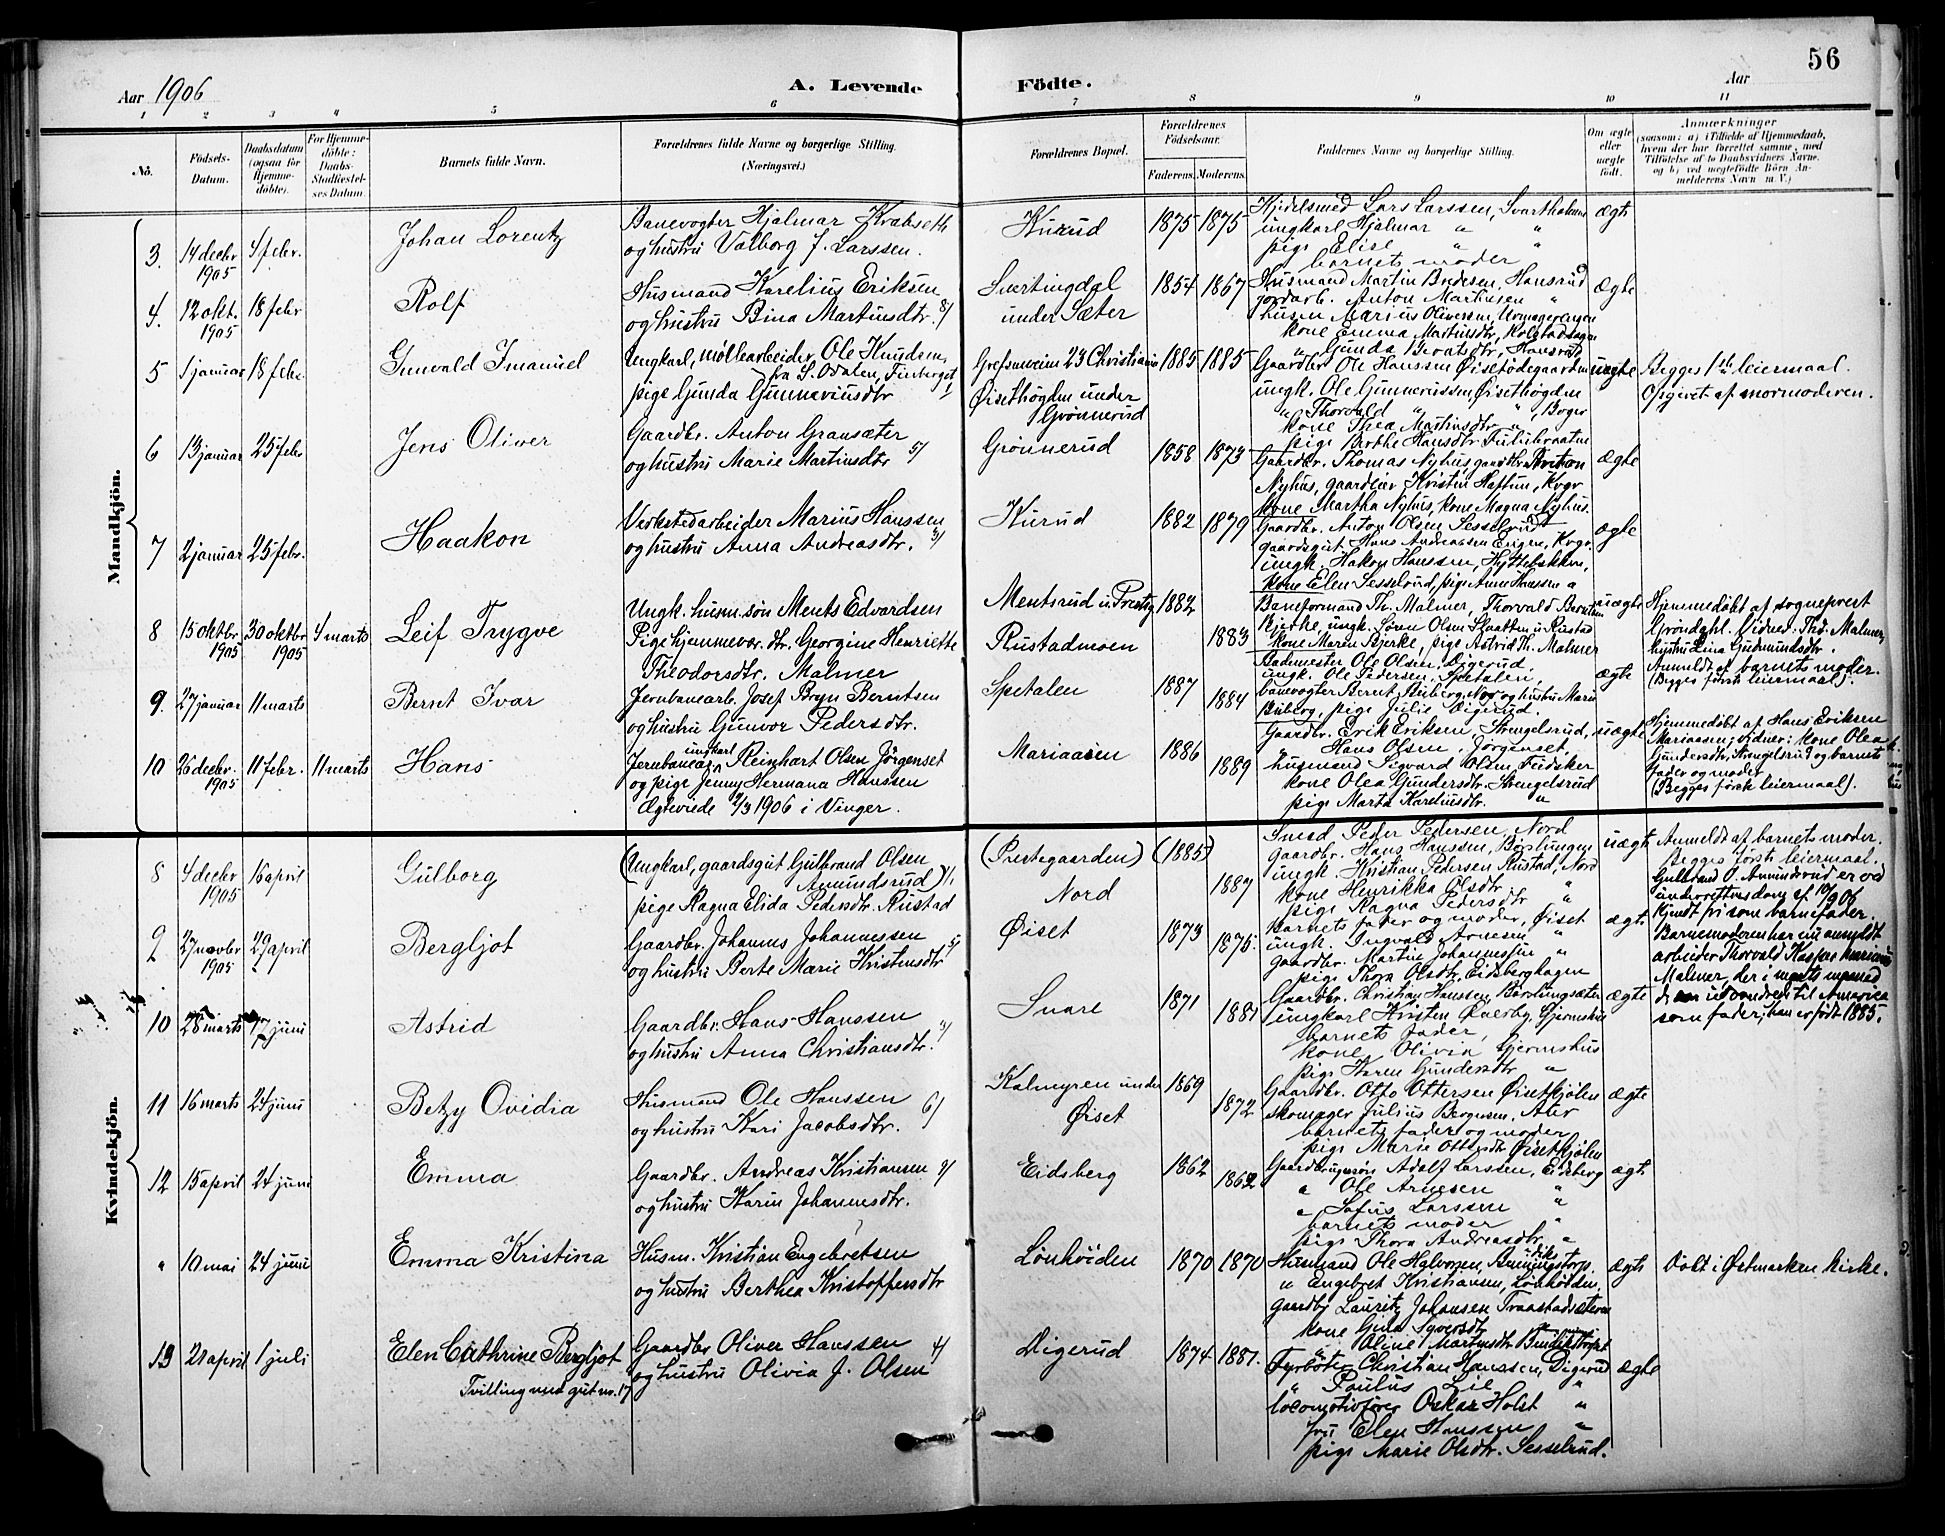 56
Aar 1906
A. Levende Födte.
Aar
1 2 3 4 5 6 7 8 9 10 11
No.
Födsels-Datum.
Daabsdatum (ogsaa for Hjemme-döbte).
For Hjemme-döbte: Daabs-Stadfæstel-ses Datum.
Barnets fulde Navn.
Forældrenes fulde Navne og borgerlige Stilling. (Næringsvei.)
Forældrenes Bopæl.
Forældrenes Födselsaar.
Faderens. Moderens.
Faddernes Navne og borgerlige Stilling.
Om ægte eller uægte födt.
Anmærkninger
(saasom: a) i Tilfælde af Hjemmedaab, hvem der har forrettet samme, med Tilföielse af to Daabsvidners Navne. og b) ved uægtefödte Börn An-melderens Navn m. V.)
Mandkjön.
3. 14 decbr 1905 4 febr. Johan Lorentz
Banevogter Hjalmar Krabseth
og hustru Valborg J. Larssen.
Kurud 1875 1875
Kjedelsmed Lars Larssen, Svartholmen
ungkarl Hjalmar " "
pige Elise " "
barnets moder
ægte
4. 12 okt. 1905 18 febr Rolf
Husmand Karelius Eriksen
og hustru Bina Martinsdtr. 8/
Svertingdal
under Sæter
1854 1867
Husmand Martin Andersen, Hansrud
jordarb. Anton Martinsen "
kone Emma Martinsdtr,
" Gunda
ægte
5 1 januar 18 febr Gunvald Imanuel
Ungkarl, möllearbeider Ole Knudsen,
fra S. Odalen,
pige Gunda Gunneriusdtr 1/
23 Christiania
Øisethögden under
Grönnerud
1885 1885
Gaardbr Ole Hanssen Øisetödegaarden
ungk. Ole Gunnerussen, Øisethögden
" Thorvald " "
kone Thea Martinsdtr "
pige Berthe Hansdtr
uægte
Begges 1ste leiermaal.
Opgivet af mormoderen.
6 13 januar 25 febr Jens Oliver
Gaardbr. Anton Gransæter
og hustru Marie Martinsdtr 5/
Grönnerud 1858 1873
Gaardbr. Thomas Nyhus, gaardbr.
Nyhus, gaardeier Kristin Haftun, Kvgr
kone Martha Nyhus, kone Magna Nyhus.
ægte
7 2 januar 25 febr. Haakon
Verkstedarbeider Marius Hanssen
og hustru Anna Andreasdtr. 3/
Kurud 1882 1879
Gaardbr. Anton Olsen Sesselrud
gaardsgut Hans Andreassen Eugen, Kvgr.
ungk. Hakon Hanssen,
kone Elen Sesselrud, pige Anne Hanssen "
ægte
8 15 oktbr 1905 30 oktbr 1905 4 marts Leif Trygve
Ungk. husm. sön Ments Edvardsen
Pige hjemmevær. dtr. Georgine Henriette
Theodorsdtr. Malmer
Mentsrud u. Prestg 1882
Rustadmoen 1883
Baneformand Th. Malmer, Thorvald Berntsen
Bjerke, ungk. Sören Olsen Skaatten u. Rustad
kone Maren Bjerke, pige Astrid Th. Malmer
uægte
Hjemmedöbt af sogneprest
Gröndahl. Vidner. Thd. Malmer,
hustru Lina Gudmundsdtr.
Anmeldt af barnets moder.
(Begges förste leiermaal).
9. 27 januar 11 marts Bernt Ivar
Jernbanearb. Josef Bryn Berntsen
og hustru Gunvor Pedersdtr.
Spetalen 1887 1884
Bademester Ole Olsen, Digerud.
ungk. Ole Pedersen, Spetalen,
banevogter Bernt Buberg, Nor og hustru Marie
Buberg, pige Julie Digerud.
ægte
10 26 decbr. 1905 11 febr. 11 marts Hans
ungkarl
Jernbanearb. Reinhart Olsen Jörgenset
og pige Jenny Hermana Hanssen
Ægteviede 4/3 1906 i Vinger.
Mariaasen 1886 1889
Gaardbr. Erik Eriksen, Strengelsrud,
Hans Olsen, Jörgenset,
husmand Segvard Olsen, Feidsker
kone Olea Gundersdtr. Strengelsrud
pige Marta Kareliusdtr. "
uægte
Hjemmedöbt af Hans Eriksen
Mariaasen; vidner: kone Olea
Gundersdtr, Strengelsrud og barnets
fader og moder
(Begges förste leiermaal).
Kvindekjön.
8 4 decbr 1905 16 april Gulborg
(Ungkarl, gaardsgut Gulbrand Olsen
Amundsrud) 1/1
pige Ragna Elida Pedersdtr. Rustad
(Prestegaarden) (1885)
Nord 1887
Smed Peder Pedersen, Nord
gaardbr. Hans Hanssen, Börslungen
ungk. Kristian Pedersen Rustad, Nord
kone Henrikka Olsdtr "
pige Ragna Pedersdtr "
uægte
Anmeldt af barnets moder.
Begges förste leiermaal.
Gulbrand O. Amundsrud er ved
underretsdom af 10/9 06
kjendt fri som barnefader.
Barnemoderen har nu anmeldt
arbeider Thorvald Kaspar Marinius
Malmer, der i marts maaned
d. aar utvandret til Amerika
som fader; han er födt 1885.
9 27 novbr 1905 29 april Bergljot
Gaardbr. Johannes Johannessen
og hustru Berte Marie Kristensdtr 5/
Øiset 1873 1875
Barnets fader og moder, Øiset
ungk. Ingvald Arnesen "
gaardbr. Martin Johannessen "
pige Thora Olsdtr, Eidsberghagen
ægte
10 28 marts 17 juni Astrid
Gaardbr. Hans Hanssen
og hustru Anna Christiansdtr.
Snare 1871 1881
Gaardbr. Christian Hanssen, Börslungsæter
ungkarl Kristen Överby, Gjermshus
barnets fader,
kone Olivia Gjermshus
pige Karen Gundersdtr "
ægte
11 16 marts 24 juni Betzy Ovidia
Husmand Ole Hanssen
og hustru Kari Jacobsdtr. 6/
Kalmyren under
Øiset
1869 1872
Gaardbr. Otto Ottersen Øisetkjölen
skomager Julius Bergersen, Aler
barnets fader og moder
pige Marie Ottersdtr Øisetkjölen
ægte
12 15 april 24 juni Emma
Gaardbr. Andreas Kristiansen
og hustru Karin Johannesdtr.
Eidsberg 1862 1862
Gaardbrugersön Adolf Larssen, Eidsberg
" Ole Arnesen "
" Sofus Larssen "
barnets moder "
pige Thora Andreasdtr "
ægte
" 10 mai 24 juni Emma Kristina
Husm. Kristian Engebretsen
og hustru Berthea Kristoffersdtr
Lönhöiden 1870 1870
Husmand Ole Halvorsen,
" Engebret Kristiansen, Lönhöiden,
gaardbr Lauritz Johansen
kone Gina Syversdtr
" Oline Martinsdtr
ægte
Döbt i Östmarken kirke.
13 21 april 1 juli Elen Cathrine Bergljot
Tvilling med gut no. 17
Gaardbr Oliver Hanssen 4/
og hustru Olivia J. Olsen
Digerud 1874 1881.
Fyrböter Christian Hanssen, Digerud
" Paulus Lie "
locomotivförer Oskar Holst "
fru Elen Hanssen "
pige Marie Olsdtr. Sesselrud.
ægte